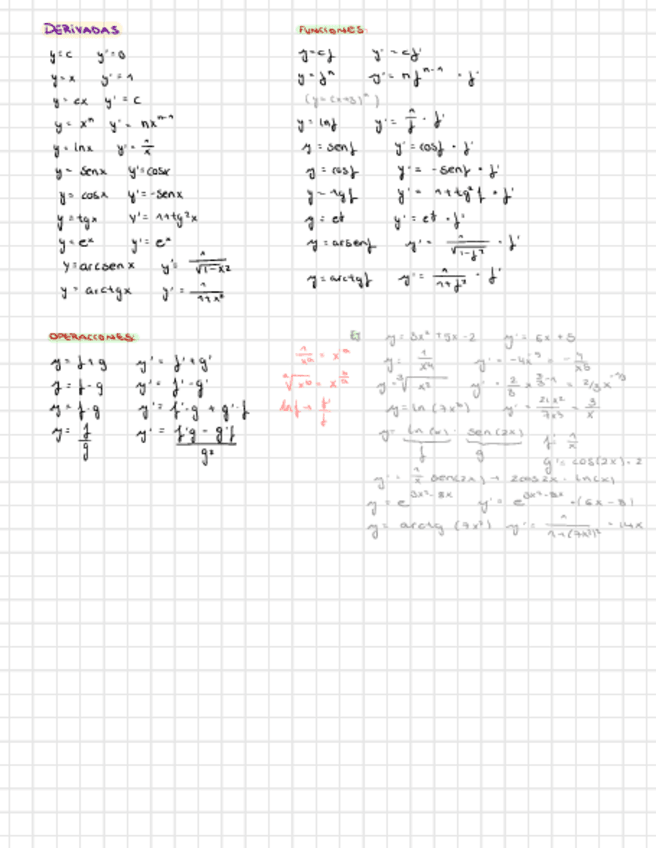 DERIVADAS
y=c y'=0
y=x y'=1
y=cx y'=c
y=xⁿ y'=nxⁿ⁻¹
y=lnx y'=1/x
y=senx y'=cosx
y=cosx y'=-senx
y=tgx y'=1+tg²x
y=eˣ y'=eˣ
y=arcsenx y'=1/√(1-x2)
y=arctgx y'=1/(1+x²)
FUNCIONES
y=cf y'=cf'
y=fⁿ y'=nfⁿ⁻¹ · f'
y=lnf y'=1/f · f'
y=senf y'=cosf · f'
y=cosf y'=-senf · f'
y=tgf y'=1+tg²f · f'
y=ef y'=ef · f'
y=arsenf y'=1/√(1-f²) · f'
y=arctgf y'=1/(1+f²) · f'
OPERACIONES
y=f+g y'=f'+g'
y=f-g y'=f'-g'
y=f·g y'=f'·g + g'·f
y=f/g y'=(f'g - g'f)/g²
lnf → f'/f
y=3x²+5x-2 y'=6x+5
y=1/x4
y=ln(7x³) y'=21x²/7x³=3/x
y=ln(x) · sen(2x) f'=1/x
f g
g'=cos(2x)·2
y'=1/x sen(2x) + 2cos2x · ln(x)
y=arctg(7x²) y'=1/(1+(7x²)²) · 14x